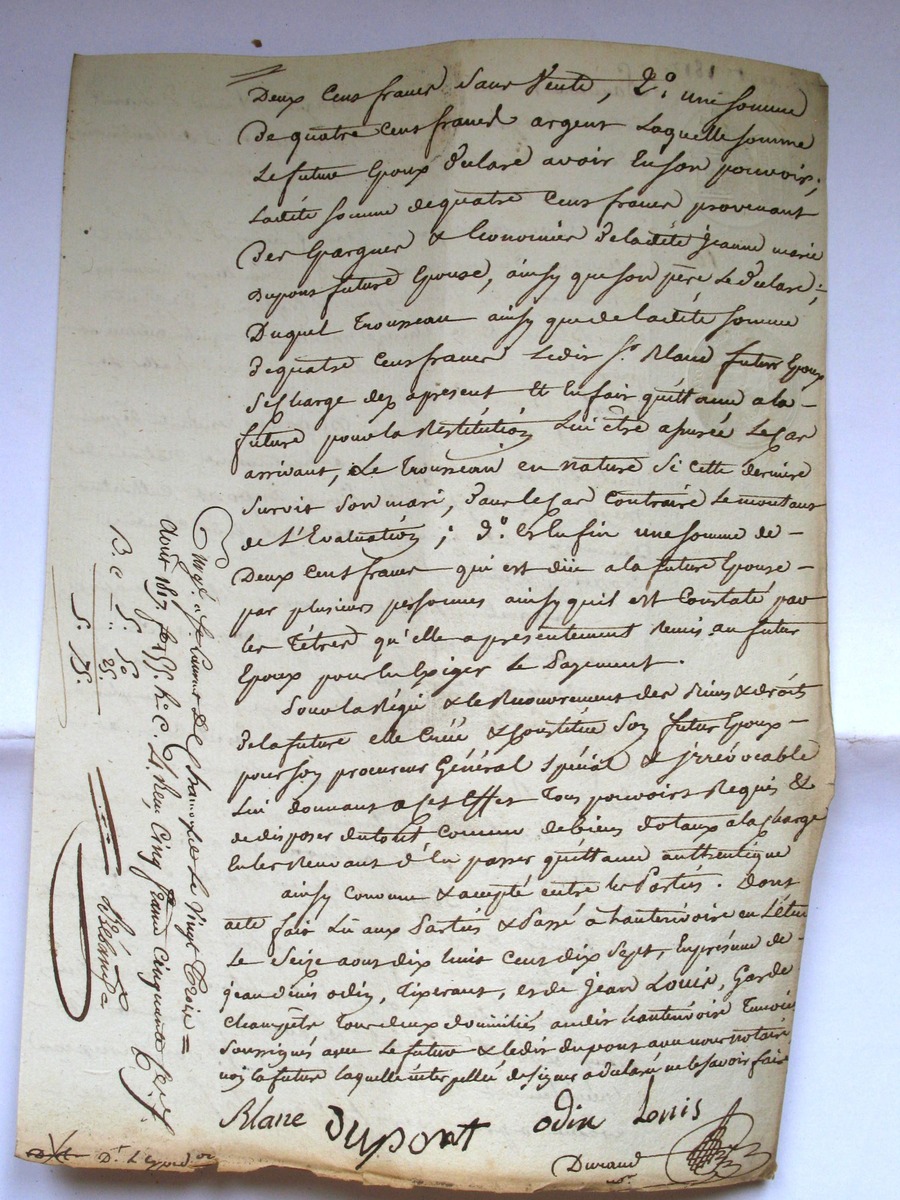 Deux Cens francs Sans Vente, 2.° une Somme
De quatre Cens francs argent Laquelle Somme
Le future Epoux déclare avoir En son pouvoir;
Ladite Somme de quatre Cens francs provenant
Des Epargnes & Economies de ladite jeanne marie
Dupons future Epouse, ainsy que son père Le déclare;
Duquel Trousseau ainsy que de ladite Somme
de quatre Cens francs Ledit S.r Blanc futur Epoux
Se Charge dez apresent Et En fait quittance a la
future pour la Restitution Lui être assurée Le Cas
arrivant, Le Trousseau en nature Si Cette derniere
Survit Son mari, dans le Cas Contraire Le montant
de L'Evaluation; 3.° Et Enfin une Somme de
Deux Cens francs qui est düe a la future Epouse
par plusieurs personnes ainsy quil est Constaté par
les Titres qu'elle a présentement Remis au futur
Epoux pour En Exiger Le Payement.
Pour la Régie & le Recouvrement des Biens & droits
de la future elle Crée & Constitue Son futur Epoux
pour Son procureur Général Spécial & jrrévocable
Lui donnant a Cet Effet Tous pouvoirs Requis &
de disposer du tout Comme de biens dotaux a la Charge
En les Recevant d'En passer quittance authentique
ainsy Convenu & accepté entre les Parties. Dont
acte fait Lu aux Parties & Passé à hauterivoire en L'étude
Le Seize aout dix huit Cens dix Sept, En présence de
jean denis odin, Tixerant, et de jean Louis, Garde
Champêtre Tous deux domiciliés audit hauterivoire Temoins
Soussignés avec Le future & ledit dupont avec nous notaire
non la future laquelle interpellée de Signer a déclaré ne le Savoir faire
Blanc Dupont odin Louis
Durand
n.re
Le Vingt Trois
Août 1817. Cinq francs Cinquante
5. 50